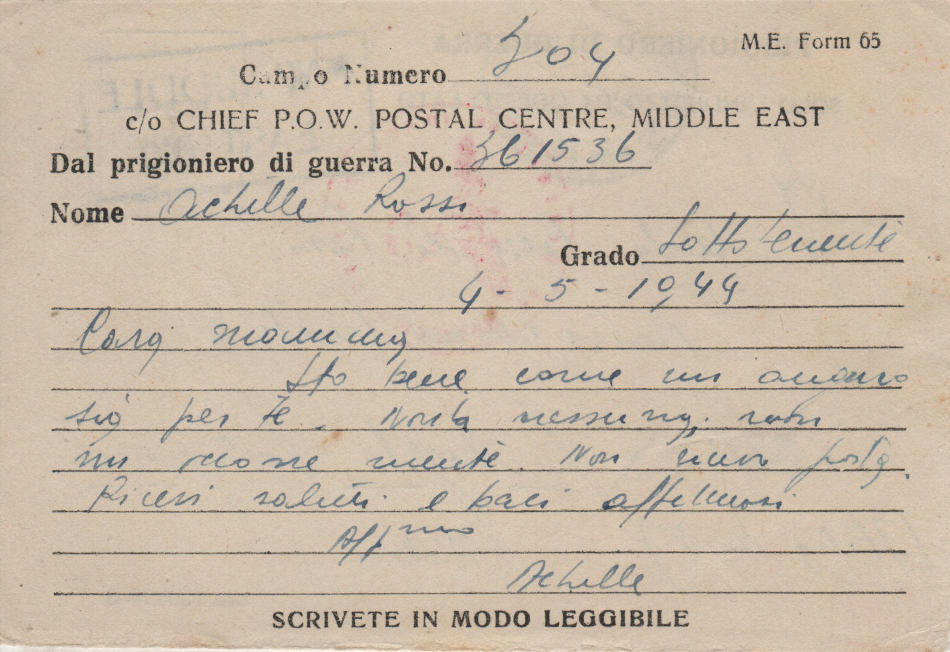 M.E. Form 65
Campo Numero 304
c/o CHIEF P.O.W. POSTAL CENTRE, MIDDLE EAST
Dal prigioniero di guerra No. 361536
Nome Achille Rossi
Grado Sottotenente
4-5-1944
Cara mamma
Sto bene come mi auguro
sia per te. Novità nessuna, non
mi occorre niente. Non nuova posta.
Ricevi saluti e baci affettuosi
Aff.mo
Achille
SCRIVETE IN MODO LEGGIBILE